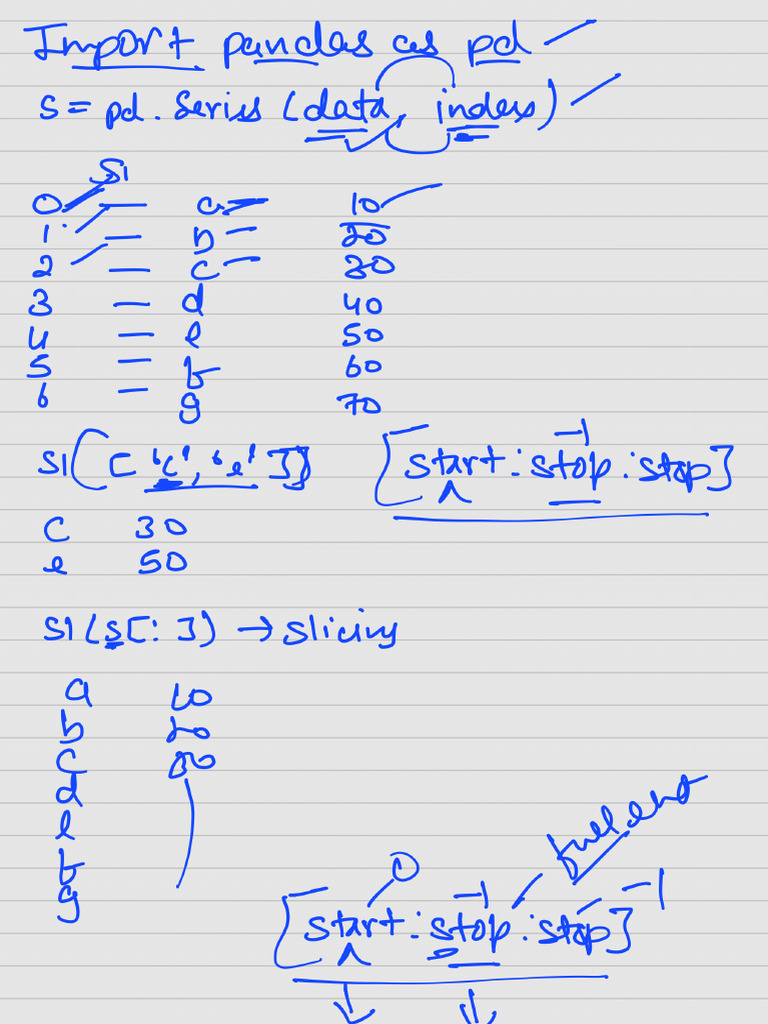 Import pandas as pd
s = pd. Series (data, index)
S1
0 — a — 10
1 — b — 20
2 — c — 30
3 — d 40
4 — e 50
5 — f 60
6 — g 70
S1([ 'c', 'e' ]) [start : stop : step]
-1
c 30
e 50
S1(s[:]) → slicing
a 10
b 20
c 30
d
e
f
g
full ent
0 -1 -1
[start : stop : step]